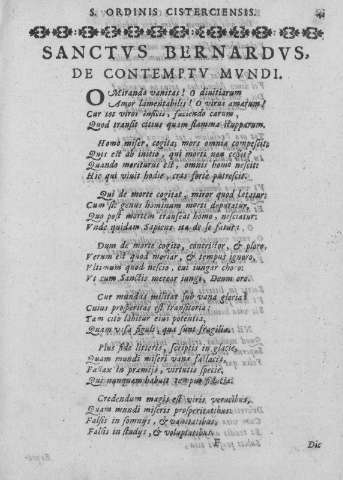 S. ORDINIS CISTERCIENSIS. 41
SANCTVS BERNARDVS,
DE CONTEMPTV MVNDI.
O Miranda vanitas! O divitiarum
Amor lamentabilis! O virus amarum!
Cur tot viros inficis, faciendo carum,
Quod transit citius quam flamma stupparum.
Homo miser, cogita; mors omnia compescit;
Quis est ab initio, qui morti non cessit?
Quando moriturus est, omnis homo nescit
Hic qui vivit hodie, cras forte putrescit.
Qui de morte cogitat, miror quod lætatur:
Cum sic genus hominum morti deputatur,
Quo post mortem transeat homo, nesciatur:
Vnde quidam Sapiens ita de se fatur:
Dum de morte cogito, contristor, & ploro,
Verum est quod moriar, & tempus ignoro,
Vltimum quod nescio, cui jungar choro:
Vt cum Sanctis merear jungi, Deum oro.
Cur mundus militat sub vana gloria?
Cujus prosperitas est transitoria:
Tam cito labitur ejus potentia,
Quam vasa figuli, quæ sunt fragilia.
Plus fide literis, scriptis in glacie,
Quam mundi miseri vanæ fallaciæ,
Fallax in præmijs, virtutis specie,
Qui nunquam habuit tempus fiduciæ.
Credendum magis est viris veracibus,
Quam mundi miseris prosperitatibus:
Falsis in somnijs, & vanitatibus,
Falsis in studijs, & voluptatibus.
F
Dic